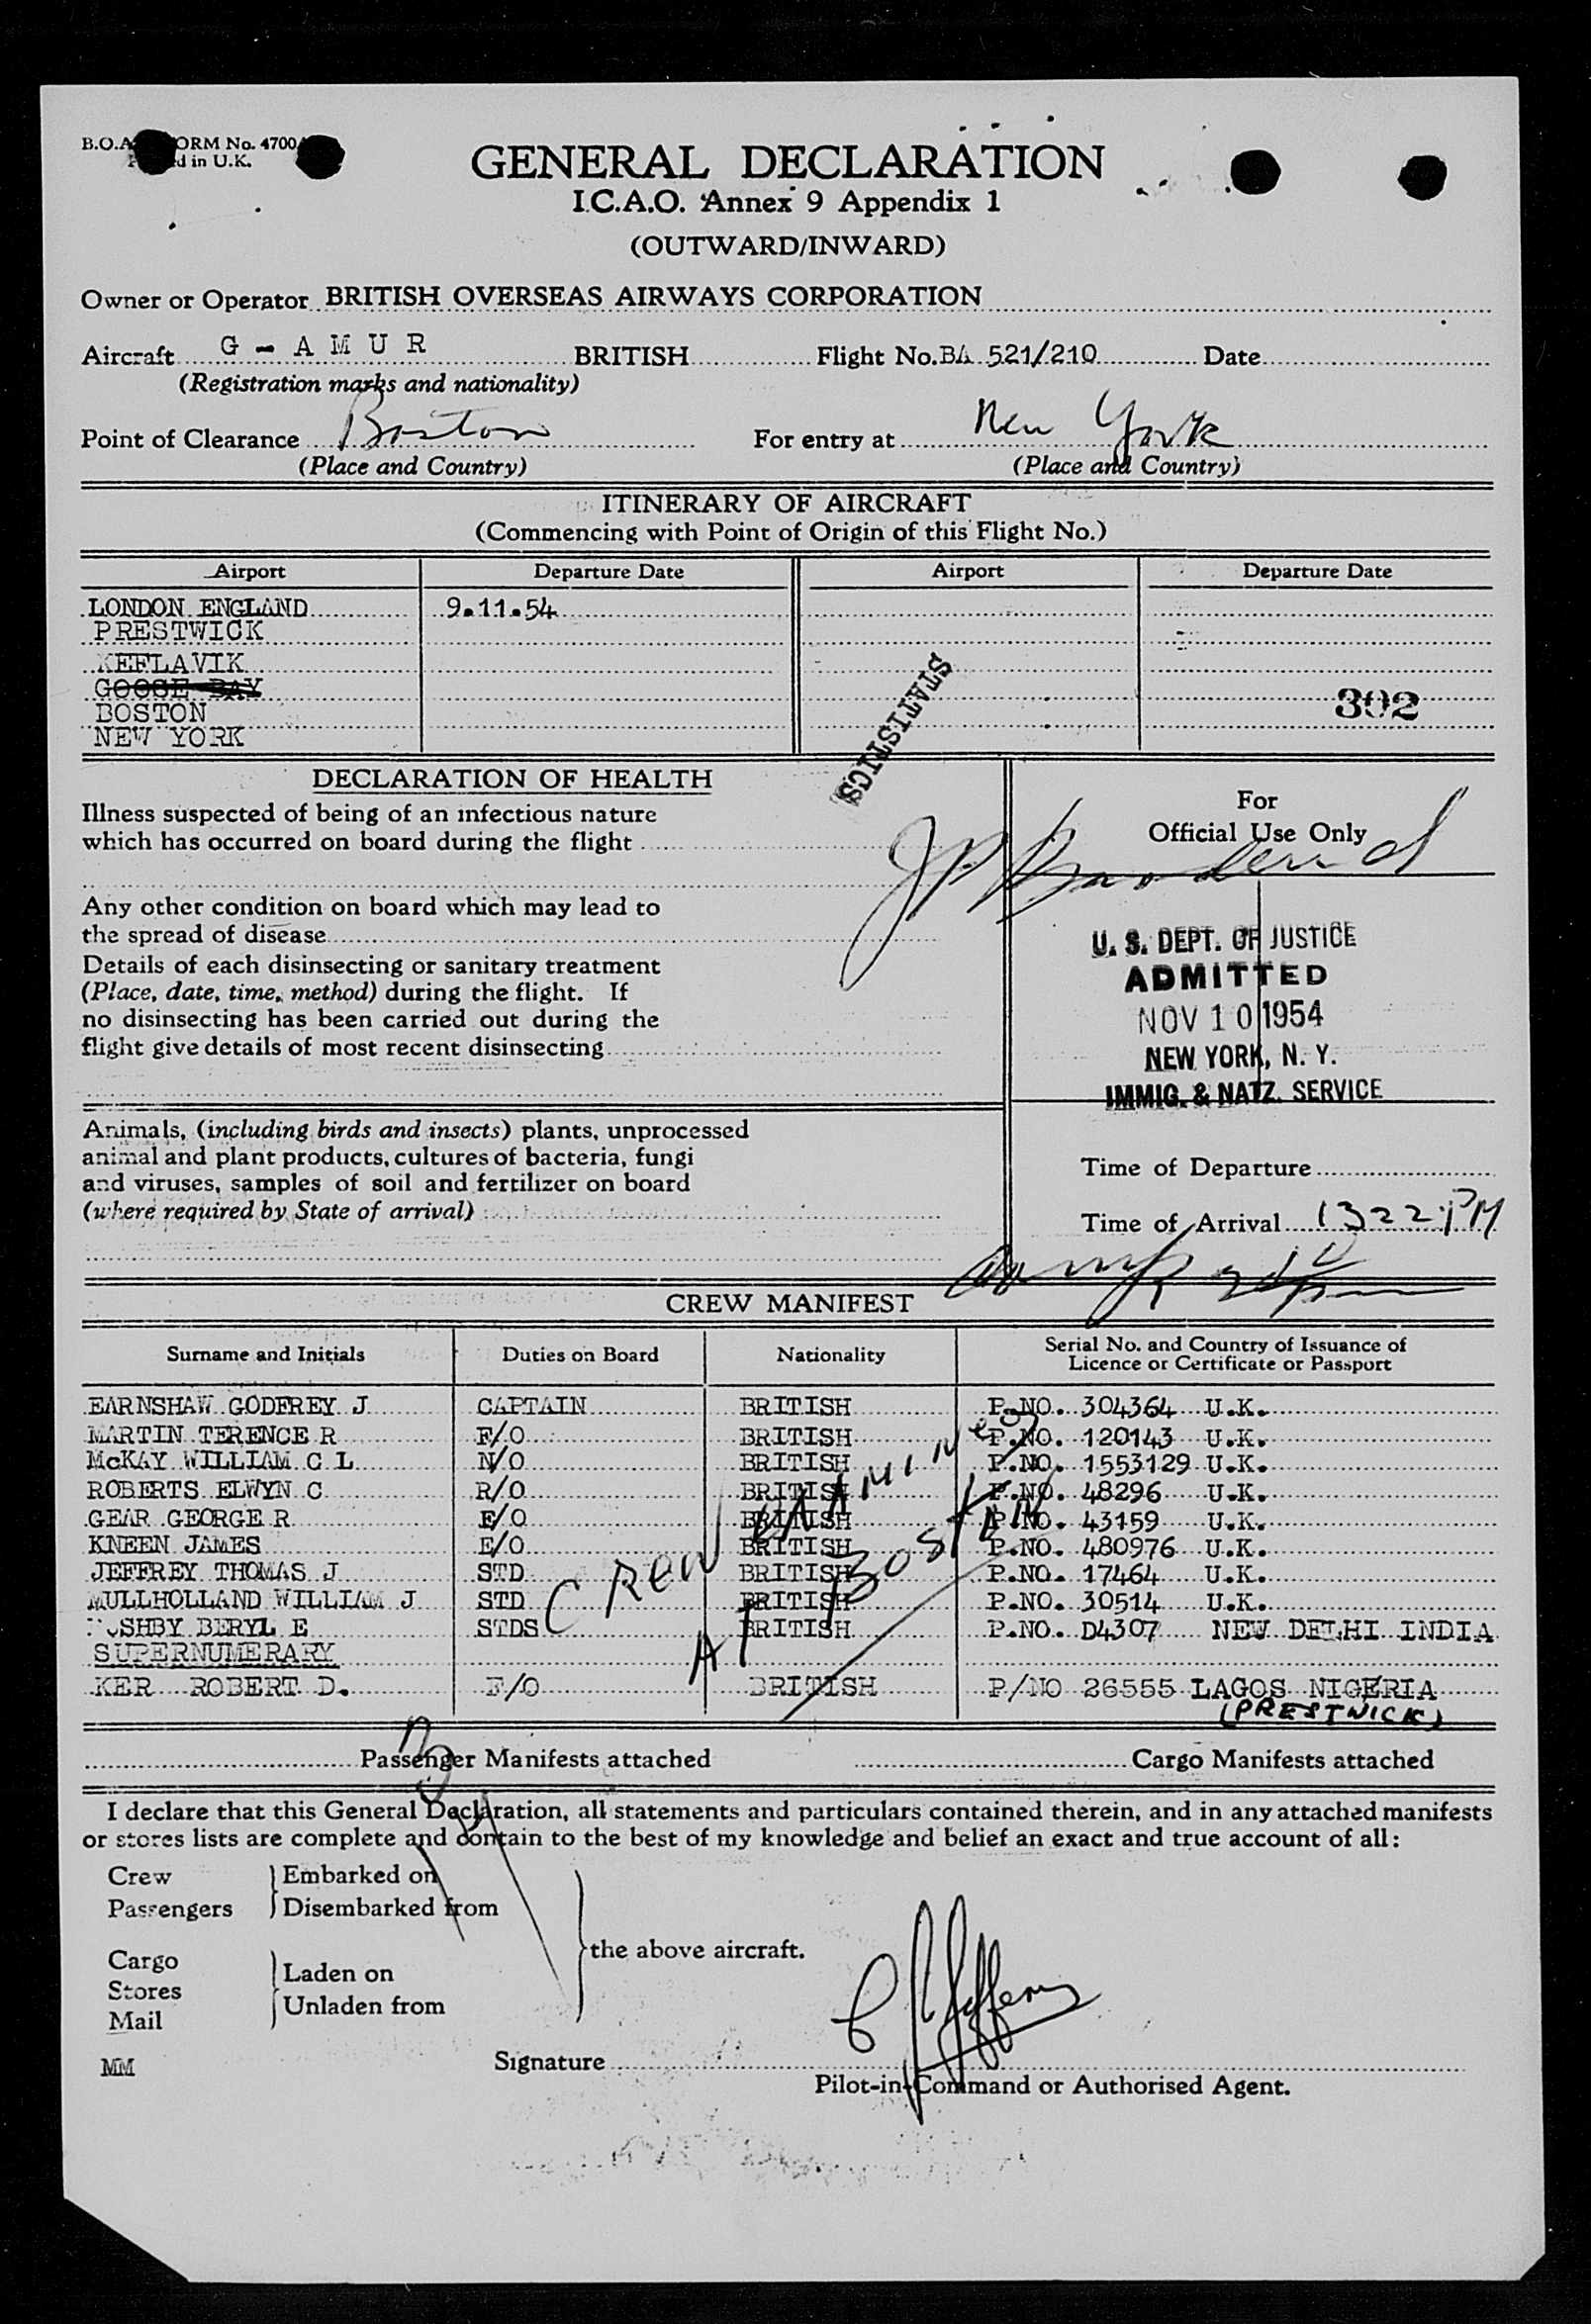 B.O.A. FORM No. 4700
d in U.K.
GENERAL DECLARATION
I.C.A.O. Annex 9 Appendix 1
(OUTWARD/INWARD)
Owner or Operator BRITISH OVERSEAS AIRWAYS CORPORATION
Aircraft G - A M U R BRITISH Flight No. BA 521/210 Date
(Registration marks and nationality)
Point of Clearance Boston For entry at New York
(Place and Country) (Place and Country)
ITINERARY OF AIRCRAFT
(Commencing with Point of Origin of this Flight No.)
Airport Departure Date Airport Departure Date
LONDON ENGLAND 9.11.54
PRESTWICK
KEFLAVIK
GOOSE BAY
BOSTON
NEW YORK
302
STATISTICS
DECLARATION OF HEALTH
Illness suspected of being of an infectious nature
which has occurred on board during the flight
Any other condition on board which may lead to
the spread of disease
Details of each disinsecting or sanitary treatment
(Place, date, time, method) during the flight. If
no disinsecting has been carried out during the
flight give details of most recent disinsecting
For
Official Use Only
U. S. DEPT. OF JUSTICE
ADMITTED
NOV 10 1954
NEW YORK, N. Y.
IMMIG. & NATZ. SERVICE
Animals, (including birds and insects) plants, unprocessed
animal and plant products, cultures of bacteria, fungi
and viruses, samples of soil and fertilizer on board
(where required by State of arrival)
Time of Departure
Time of Arrival 1322 PM
CREW MANIFEST
Surname and Initials Duties on Board Nationality Serial No. and Country of Issuance of
Licence or Certificate or Passport
EARNSHAW GODFREY J CAPTAIN BRITISH P.NO. 304364 U.K.
MARTIN TERENCE R F/O BRITISH P.NO. 120143 U.K.
McKAY WILLIAM C L N/O BRITISH P.NO. 1553129 U.K.
ROBERTS ELWYN C R/O BRITISH P.NO. 48296 U.K.
GEAR GEORGE R E/O BRITISH P.NO. 43159 U.K.
KNEEN JAMES E/O BRITISH P.NO. 480976 U.K.
JEFFREY THOMAS J STD BRITISH P.NO. 17464 U.K.
MULLHOLLAND WILLIAM J STD BRITISH P.NO. 30514 U.K.
BERYL E STDS BRITISH P.NO. D4307 NEW DELHI INDIA
SUPERNUMERARY
KER ROBERT D. F/O BRITISH P/NO 26555 LAGOS NIGERIA
(PRESTWICK)
CREW EXAMINED
AT BOSTON
Passenger Manifests attached Cargo Manifests attached
I declare that this General Declaration, all statements and particulars contained therein, and in any attached manifests
or stores lists are complete and contain to the best of my knowledge and belief an exact and true account of all:
Crew Embarked on
Passengers Disembarked from
the above aircraft.
Cargo Laden on
Stores
Mail Unladen from
MM
Signature
Pilot-in-Command or Authorised Agent.